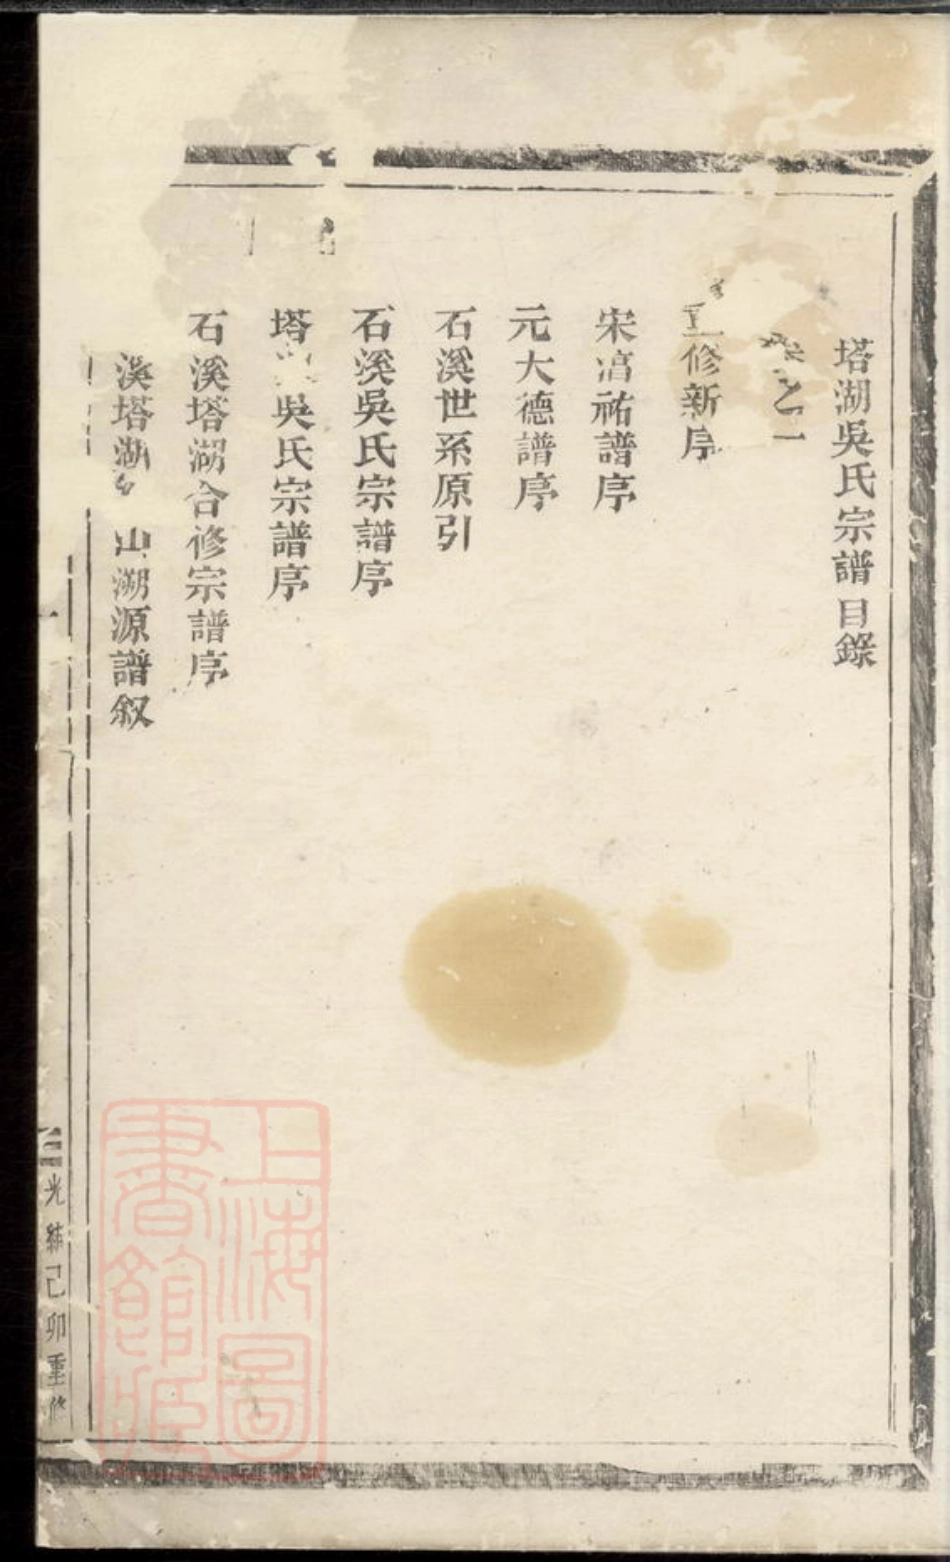 塔湖吳氏宗譜目錄
之一
重修新序
宋淳祐譜序
元大德譜序
石溪世系原引
石溪吳氏宗譜序
塔吳氏宗譜序
石溪塔湖合修宗譜序
溪塔湖山溯源譜叙
光緒己卯重修
上海圖書館藏